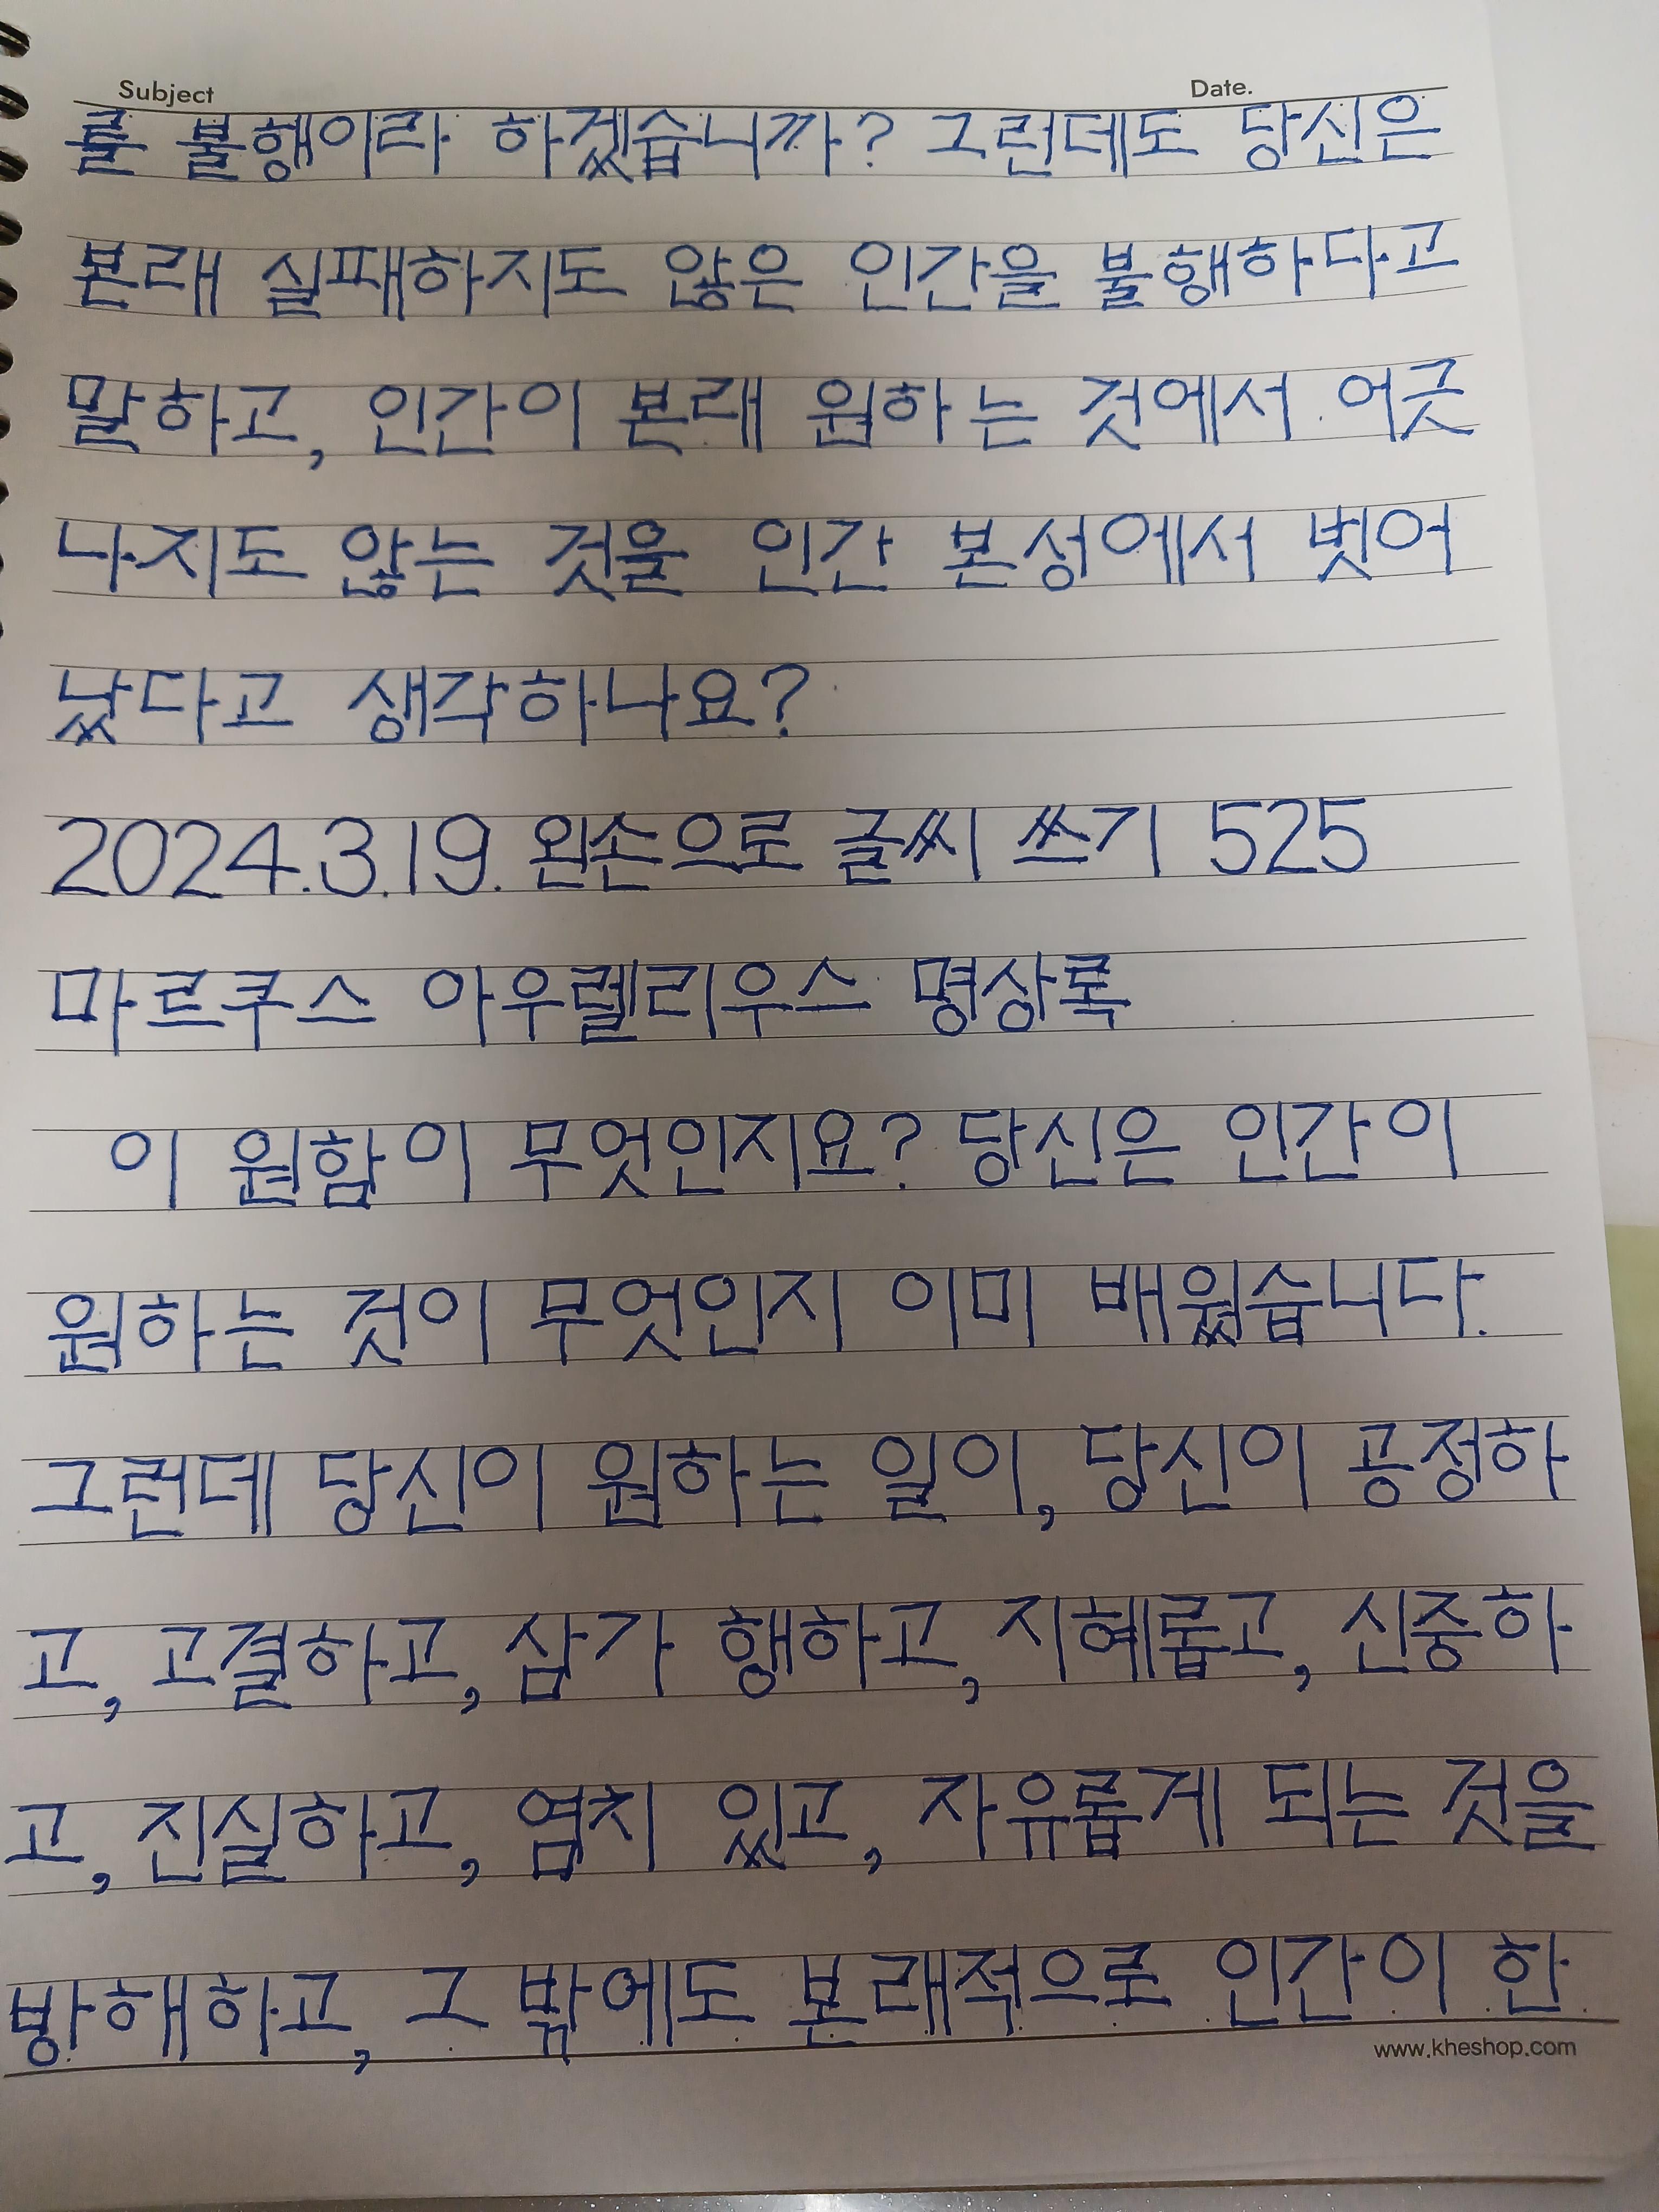 Subject Date.
를 불행이라 하겠습니까? 그런데도 당신은
본래 실패하지도 않은 인간을 불행하다고
말하고, 인간이 본래 원하는 것에서 어긋
나지도 않는 것을 인간 본성에서 벗어
났다고 생각하나요?
2024.3.19. 왼손으로 글씨 쓰기 525
마르쿠스 아우렐리우스 명상록
이 원함이 무엇인지요? 당신은 인간이
원하는 것이 무엇인지 이미 배웠습니다.
그런데 당신이 원하는 일이, 당신이 공정하
고, 고결하고, 삼가 행하고, 지혜롭고, 신중하
고, 진실하고, 염치 있고, 자유롭게 되는 것을
방해하고, 그 밖에도 본래적으로 인간이 한
www.kheshop.com